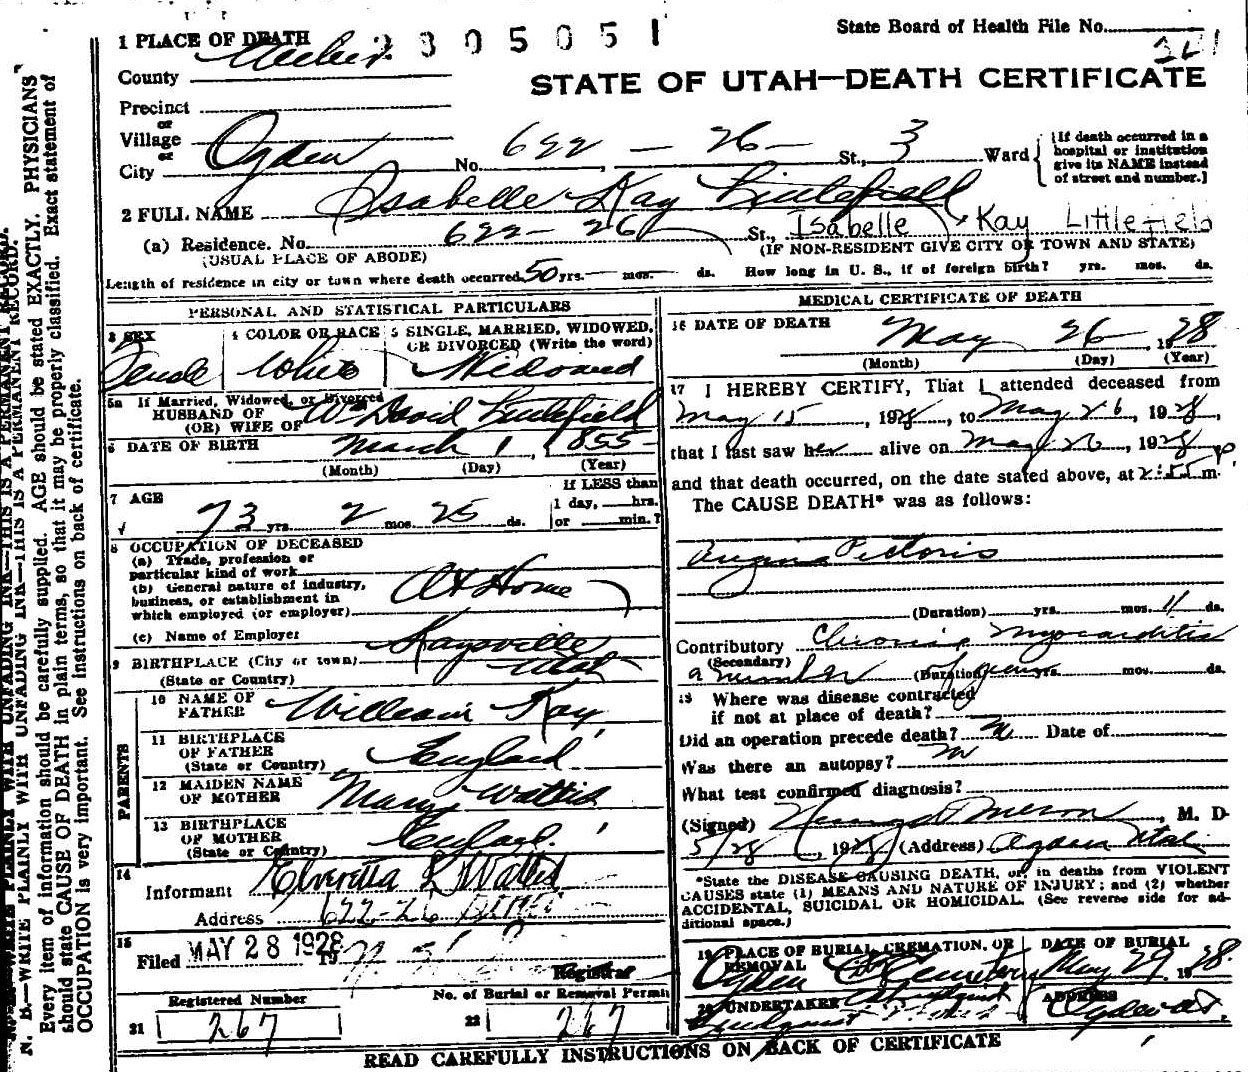 State Board of Health File No.
2305051
STATE OF UTAH—DEATH CERTIFICATE
1 PLACE OF DEATH
County Weber
Precinct
or
Village
or
City Ogden No. 622 — 26 — St., 3 Ward
[If death occurred in a hospital or institution give its NAME instead of street and number.]
2 FULL NAME Isabelle Kay Littlefield
Isabelle Kay Littlefield
(a) Residence. No. 622-26 St.,
(USUAL PLACE OF ABODE)
(IF NON-RESIDENT GIVE CITY OR TOWN AND STATE)
Length of residence in city or town where death occurred 50 yrs. — mos. — ds. How long in U. S., if of foreign birth? yrs. mos. ds.
PERSONAL AND STATISTICAL PARTICULARS
3 SEX Female
4 COLOR OR RACE White
5 SINGLE, MARRIED, WIDOWED, OR DIVORCED (Write the word) Widowed
5a If Married, Widowed, or Divorced
HUSBAND OF
(OR) WIFE OF Wm David Littlefield
6 DATE OF BIRTH March 1, 1855
(Month) (Day) (Year)
7 AGE 73 yrs. 2 mos. 25 ds.
If LESS than
1 day, hrs.
or min.?
8 OCCUPATION OF DECEASED
(a) Trade, profession or
particular kind of work At Home
(b) General nature of industry,
business, or establishment in
which employed (or employer)
(c) Name of Employer
9 BIRTHPLACE (City or town) Kaysville
(State or Country) Utah
PARENTS
10 NAME OF FATHER William Kay
11 BIRTHPLACE OF FATHER
(State or Country) England
12 MAIDEN NAME OF MOTHER Mary Wattis
13 BIRTHPLACE OF MOTHER
(State or Country) England
14
Informant Elveretta L Wattis
Address 622-26 Street
15
Filed MAY 28 1928 19
Registrar
Registered Number
21 267
No. of Burial or Removal Permit
22 267
MEDICAL CERTIFICATE OF DEATH
16 DATE OF DEATH May 26, 1928
(Month) (Day) (Year)
17 I HEREBY CERTIFY, That I attended deceased from
May 15, 1928, to May 26, 1928,
that I last saw her alive on May 26, 1928,
and that death occurred, on the date stated above, at 2:55 p m.
The CAUSE DEATH* was as follows:
Angina Pectoris
(Duration) yrs. mos. 11 ds.
Contributory Chronic Myocarditis
(Secondary) a number (Duration) of years yrs. mos. ds.
18 Where was disease contracted
if not at place of death?
Did an operation precede death? no Date of
Was there an autopsy? no
What test confirmed diagnosis?
(Signed) M. D.
5/28, 1928 (Address) Ogden Utah
*State the DISEASE CAUSING DEATH, or, in deaths from VIOLENT
CAUSES state (1) MEANS AND NATURE OF INJURY; and (2) whether
ACCIDENTAL, SUICIDAL OR HOMICIDAL. (See reverse side for ad-
ditional space.)
19 PLACE OF BURIAL, CREMATION, OR REMOVAL Ogden City Cemetery
DATE OF BURIAL May 29 1928.
20 UNDERTAKER Lindquist
ADDRESS Ogden Ut.
READ CAREFULLY INSTRUCTIONS ON BACK OF CERTIFICATE
N. B.—WRITE PLAINLY WITH UNFADING INK—THIS IS A PERMANENT RECORD.
Every item of information should be carefully supplied. AGE should be stated EXACTLY. PHYSICIANS
should state CAUSE OF DEATH in plain terms, so that it may be properly classified. Exact statement of
OCCUPATION is very important. See instructions on back of certificate.